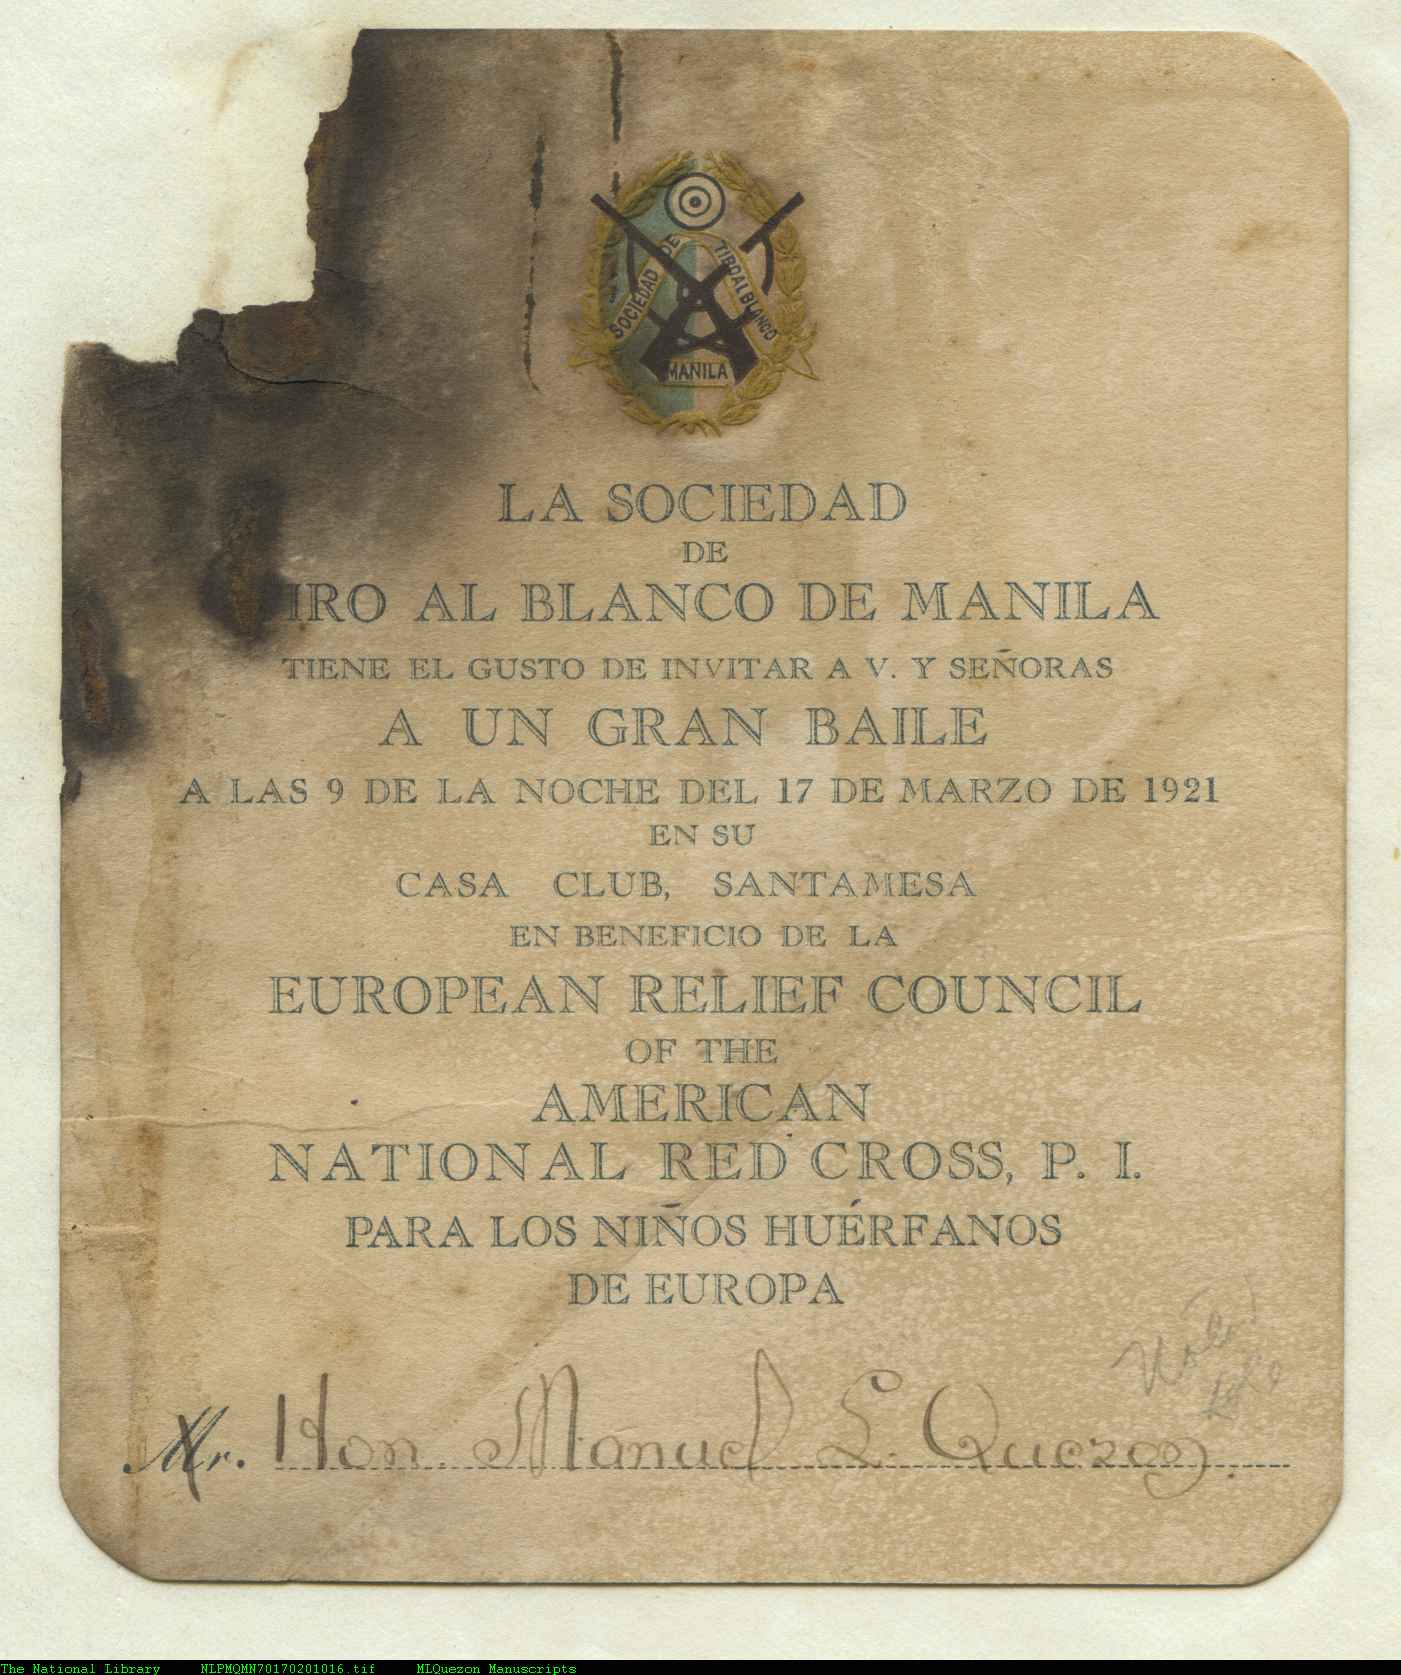 SOCIEDAD DE TIRO AL BLANCO
MANILA
LA SOCIEDAD
DE
IRO AL BLANCO DE MANILA
TIENE EL GUSTO DE INVITAR A V. Y SEÑORAS
A UN GRAN BAILE
A LAS 9 DE LA NOCHE DEL 17 DE MARZO DE 1921
EN SU
CASA CLUB, SANTAMESA
EN BENEFICIO DE LA
EUROPEAN RELIEF COUNCIL
OF THE
AMERICAN
NATIONAL RED CROSS, P. I.
PARA LOS NIÑOS HUÉRFANOS
DE EUROPA
Mr. Hon. Manuel L. Quezon.
The National Library NLPMQMN70170201016.tif MLQuezon Manuscripts